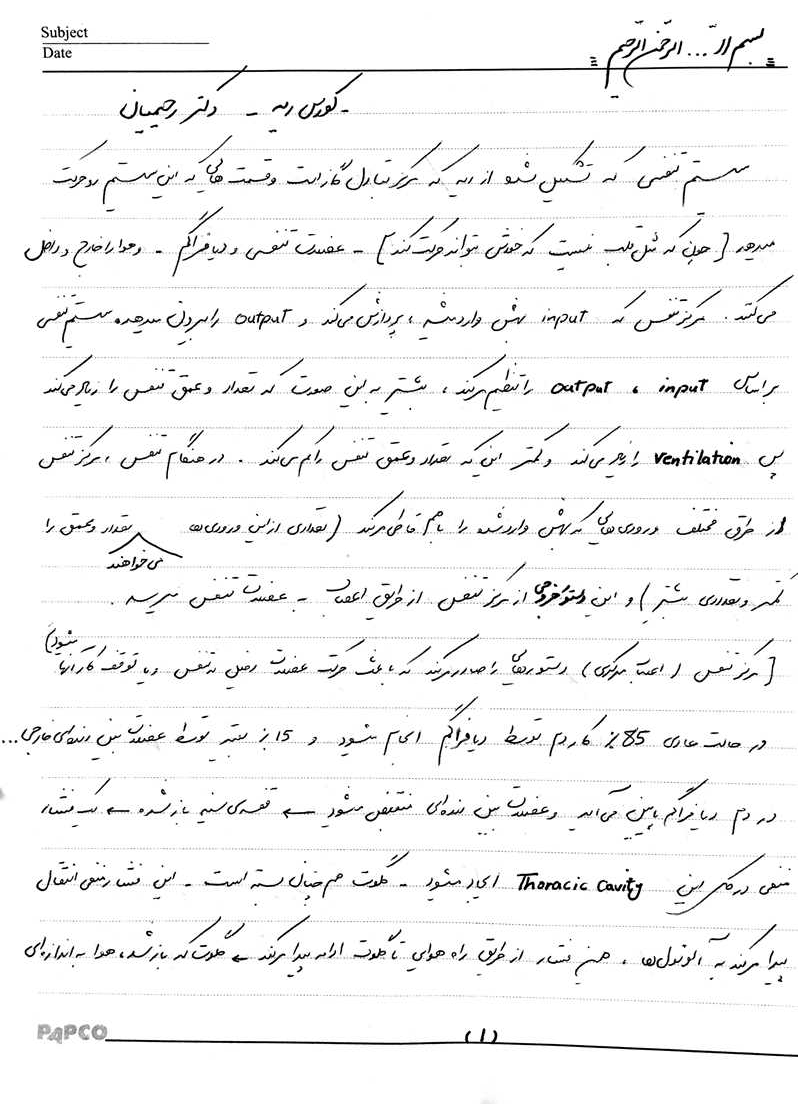 Subject
Date
بسم ا... الرحمن الرحیم
- کورس ریه - دکتر رحیمیان
سیستم تنفسی که تشکیل شده از ریه که مرکز تبادل گاز است و قسمت هایی که این سیستم رو حرکت
میدهد [چون که مثل قلب نیست که خودش بتواند حرکت کند] - عضلات تنفسی و دیافراگم - و هوا را خارج و داخل
می کند. مرکز تنفس که input بهش وارد میشه، پردازش می کند و output را بیرون میدهد. سیستم تنفسی
براساس input ، output را تنظیم میکند، بیشتر به این صورت که تعداد و عمق تنفس را زیاد می کند
پس ventilation را زیاد می کند و کمتر این که تعداد و عمق تنفس را کم می کند. در هنگام تنفس، مرکز تنفس
از طرق مختلف ورودی هایی که بهش وارد شده را با هم قاطی میکند (تعدادی از این ورودی ها تعداد و عمق را
می خواهند
کمتر و تعدادی بیشتر) و این دستور خروجی از مرکز تنفس از طریق اعصاب - عضلات تنفس میرسد.
[مرکز تنفس (اعصاب مرکزی) دستورهایی را صادر میکند که باعث حرکت عضلات دخیل در تنفس و یا توقف کار آنها میشود]
در حالت عادی 85٪ کار دم توسط دیافراگم انجام میشود و 15٪ بقیه توسط عضلات بین دنده ای خارجی...
در دم دیافراگم پایین می آید و عضلات بین دنده ای منقبض میشود ← قفسه ی سینه باز شده ← یک فشار
منفی در کل این Thoracic cavity ایجاد میشود - گلوت هم چنان بسته است - این فشار منفی انتقال
پیدا میکند به آلوئول ها، همین فشار از طریق راه هوایی تا گلوت ادامه پیدا میکند ← گلوت که باز شد، هوا به اندازه ای
PAPCO
(1)